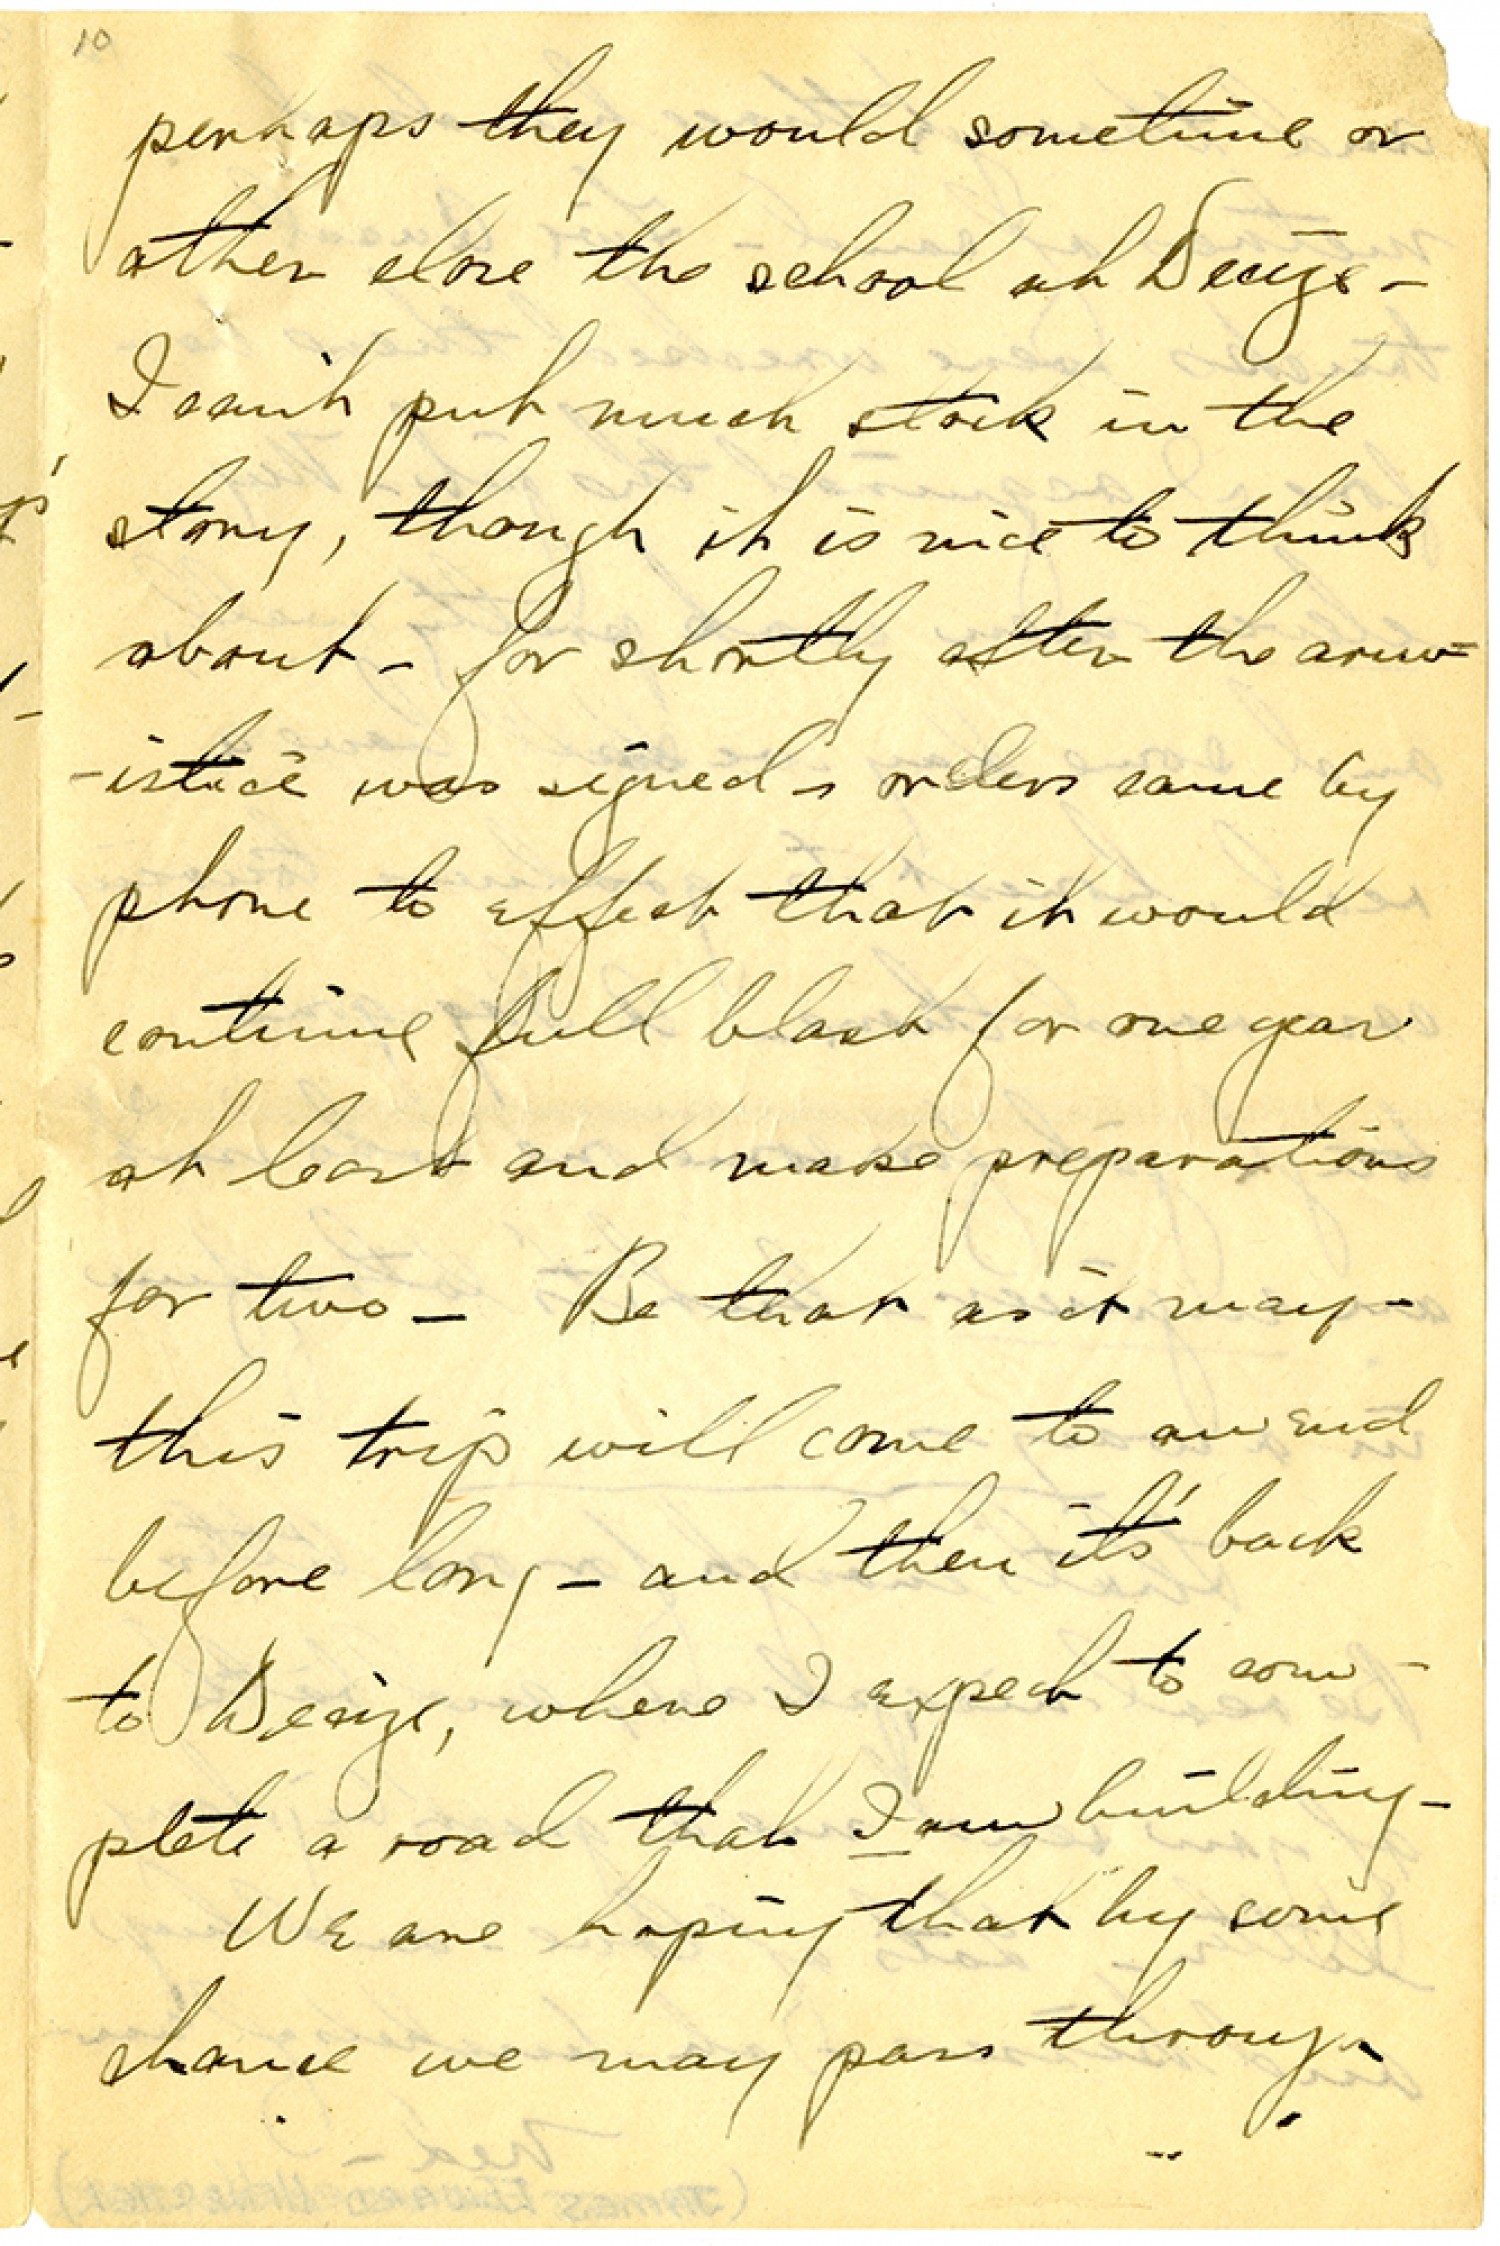 10
perhaps they would sometime or
other close the school at Decize –
I can't put much stock in the
story, though it is nice to think
about – for shortly after the arm=
-istice was signed – orders came by
phone to effect that it would
continue full blast for one year
at least and make preparations
for two – Be that as it may –
this trip will come to an end
before long – and then it's back
to Decize, where I expect to com-
plete a road that I am building –
We are hoping that by some
chance we may pass through